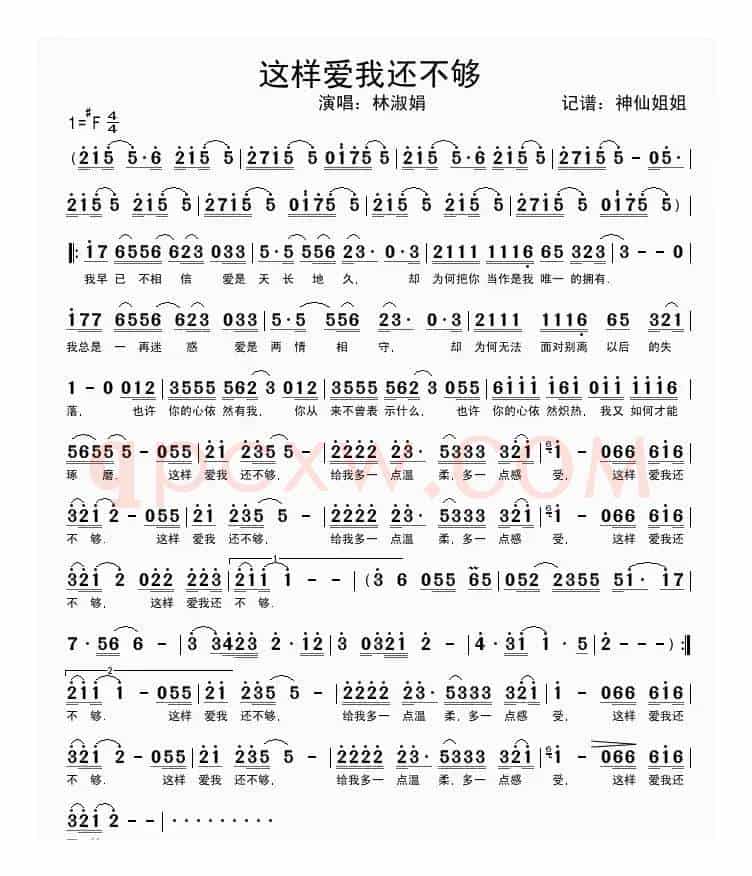 这样爱我还不够
演唱：林淑娟 记谱：神仙姐姐
1=#F 4/4
(215 5·6 215 5|2715 0175|215 5·6 215 5|2715 - 05·
215 5|2715 0175|215 5 215 5|2715 0175)
|:17 6556 623 033|5·5 556 23·0·3|2111 1116 65 323|3--0
我早已 不相信 爱是 天长地久, 却 为何把你 当作是我 唯一的拥有.
177 6556 623 033|5·5 556 23 0·3|2111 1116 65 321
我总是 一再迷惑 爱是 两情相守, 却 为何无法 面对别离 以后的失
1-0 012|3555 562 3 012|3555 562 3 055|6111 161 1 176
落, 也许 你的心依 然有我, 你从 来不曾表 示什么, 也许 你的心依 然炽热, 我又 如何才能
5655 5-055|21 235 5-|2222 23·5333 321|1-066 616
琢磨. 这样 爱我 还不够, 给我多一 点温柔,多一 点感受, 这样 爱我还
321 2-055|21 235 5-|2222 23·5333 321|1-066 616
不够. 这样 爱我 还不够, 给我多一 点温柔,多一 点感受, 这样 爱我还
1
323 2 022 223|211 1--|(3 6 055 65|052 2355 51·17
不够, 这样 爱我还 不够.
7·56 6-|3 3423 2·12|3 0321 2-|4·31 5 2|2---):|
2
211 1-055|21 235 5-|2222 23·5333 321|1-066 616
不够. 这样 爱我 还不够, 给我多一 点温柔,多一 点感受, 这样 爱我还
321 2-055|21 235 5-|2222 23·5333 321|1-066 616
不够. 这样 爱我 还不够, 给我多一 点温柔,多一 点感受, 这样 爱我还
321 2--|·········
qpcxw.COM